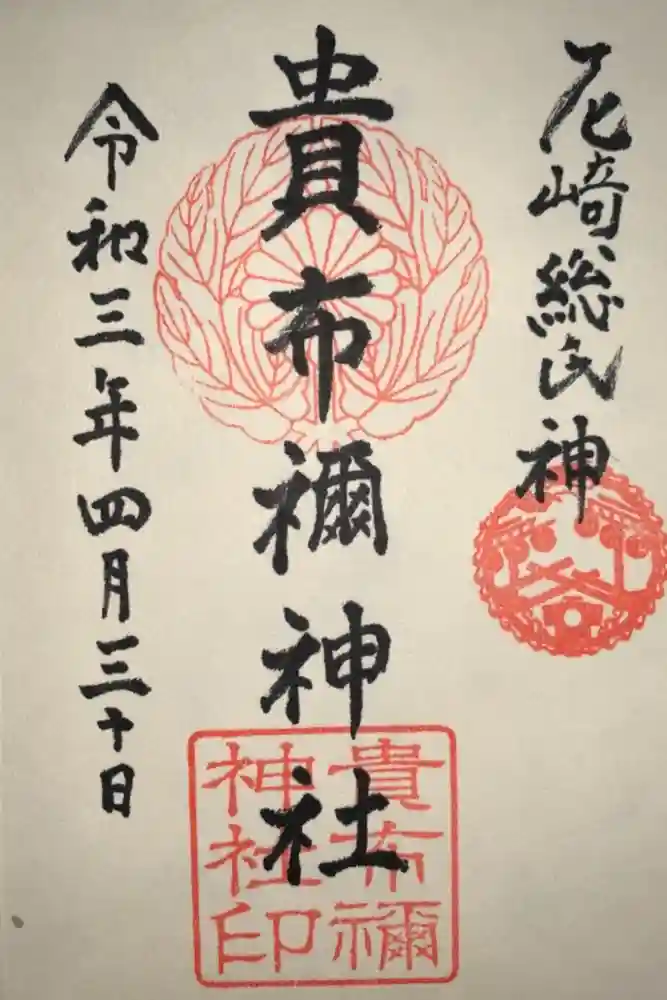 尼崎総氏神
貴布禰神社
貴布禰
神社印
令和三年四月三十日